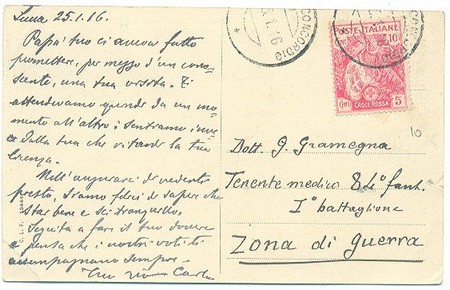 Luna 25.1.16.
Papà tuo ci aveva fatto
promettere, per mezzo d'un cono-
scente, una tua visita. T'
attendevamo quindi da un mo-
mento all'altro; sentiamo inve-
ce dalla tua che ritarda la tua
licenza.
Nell'augurarci di vederti
presto, siamo felici di sapere che
stai bene e sei tranquillo.
Seguita a fare il tuo dovere
e pensa che i nostri voti ti
accompagnano sempre.
Carlo
CONCORDIA
1.16
POSTE ITALIANE
10
CENT
CROCE ROSSA
5
10
Dott. G. Gramegna
Tenente medico 84° fant.
I° battaglione
Zona di guerra